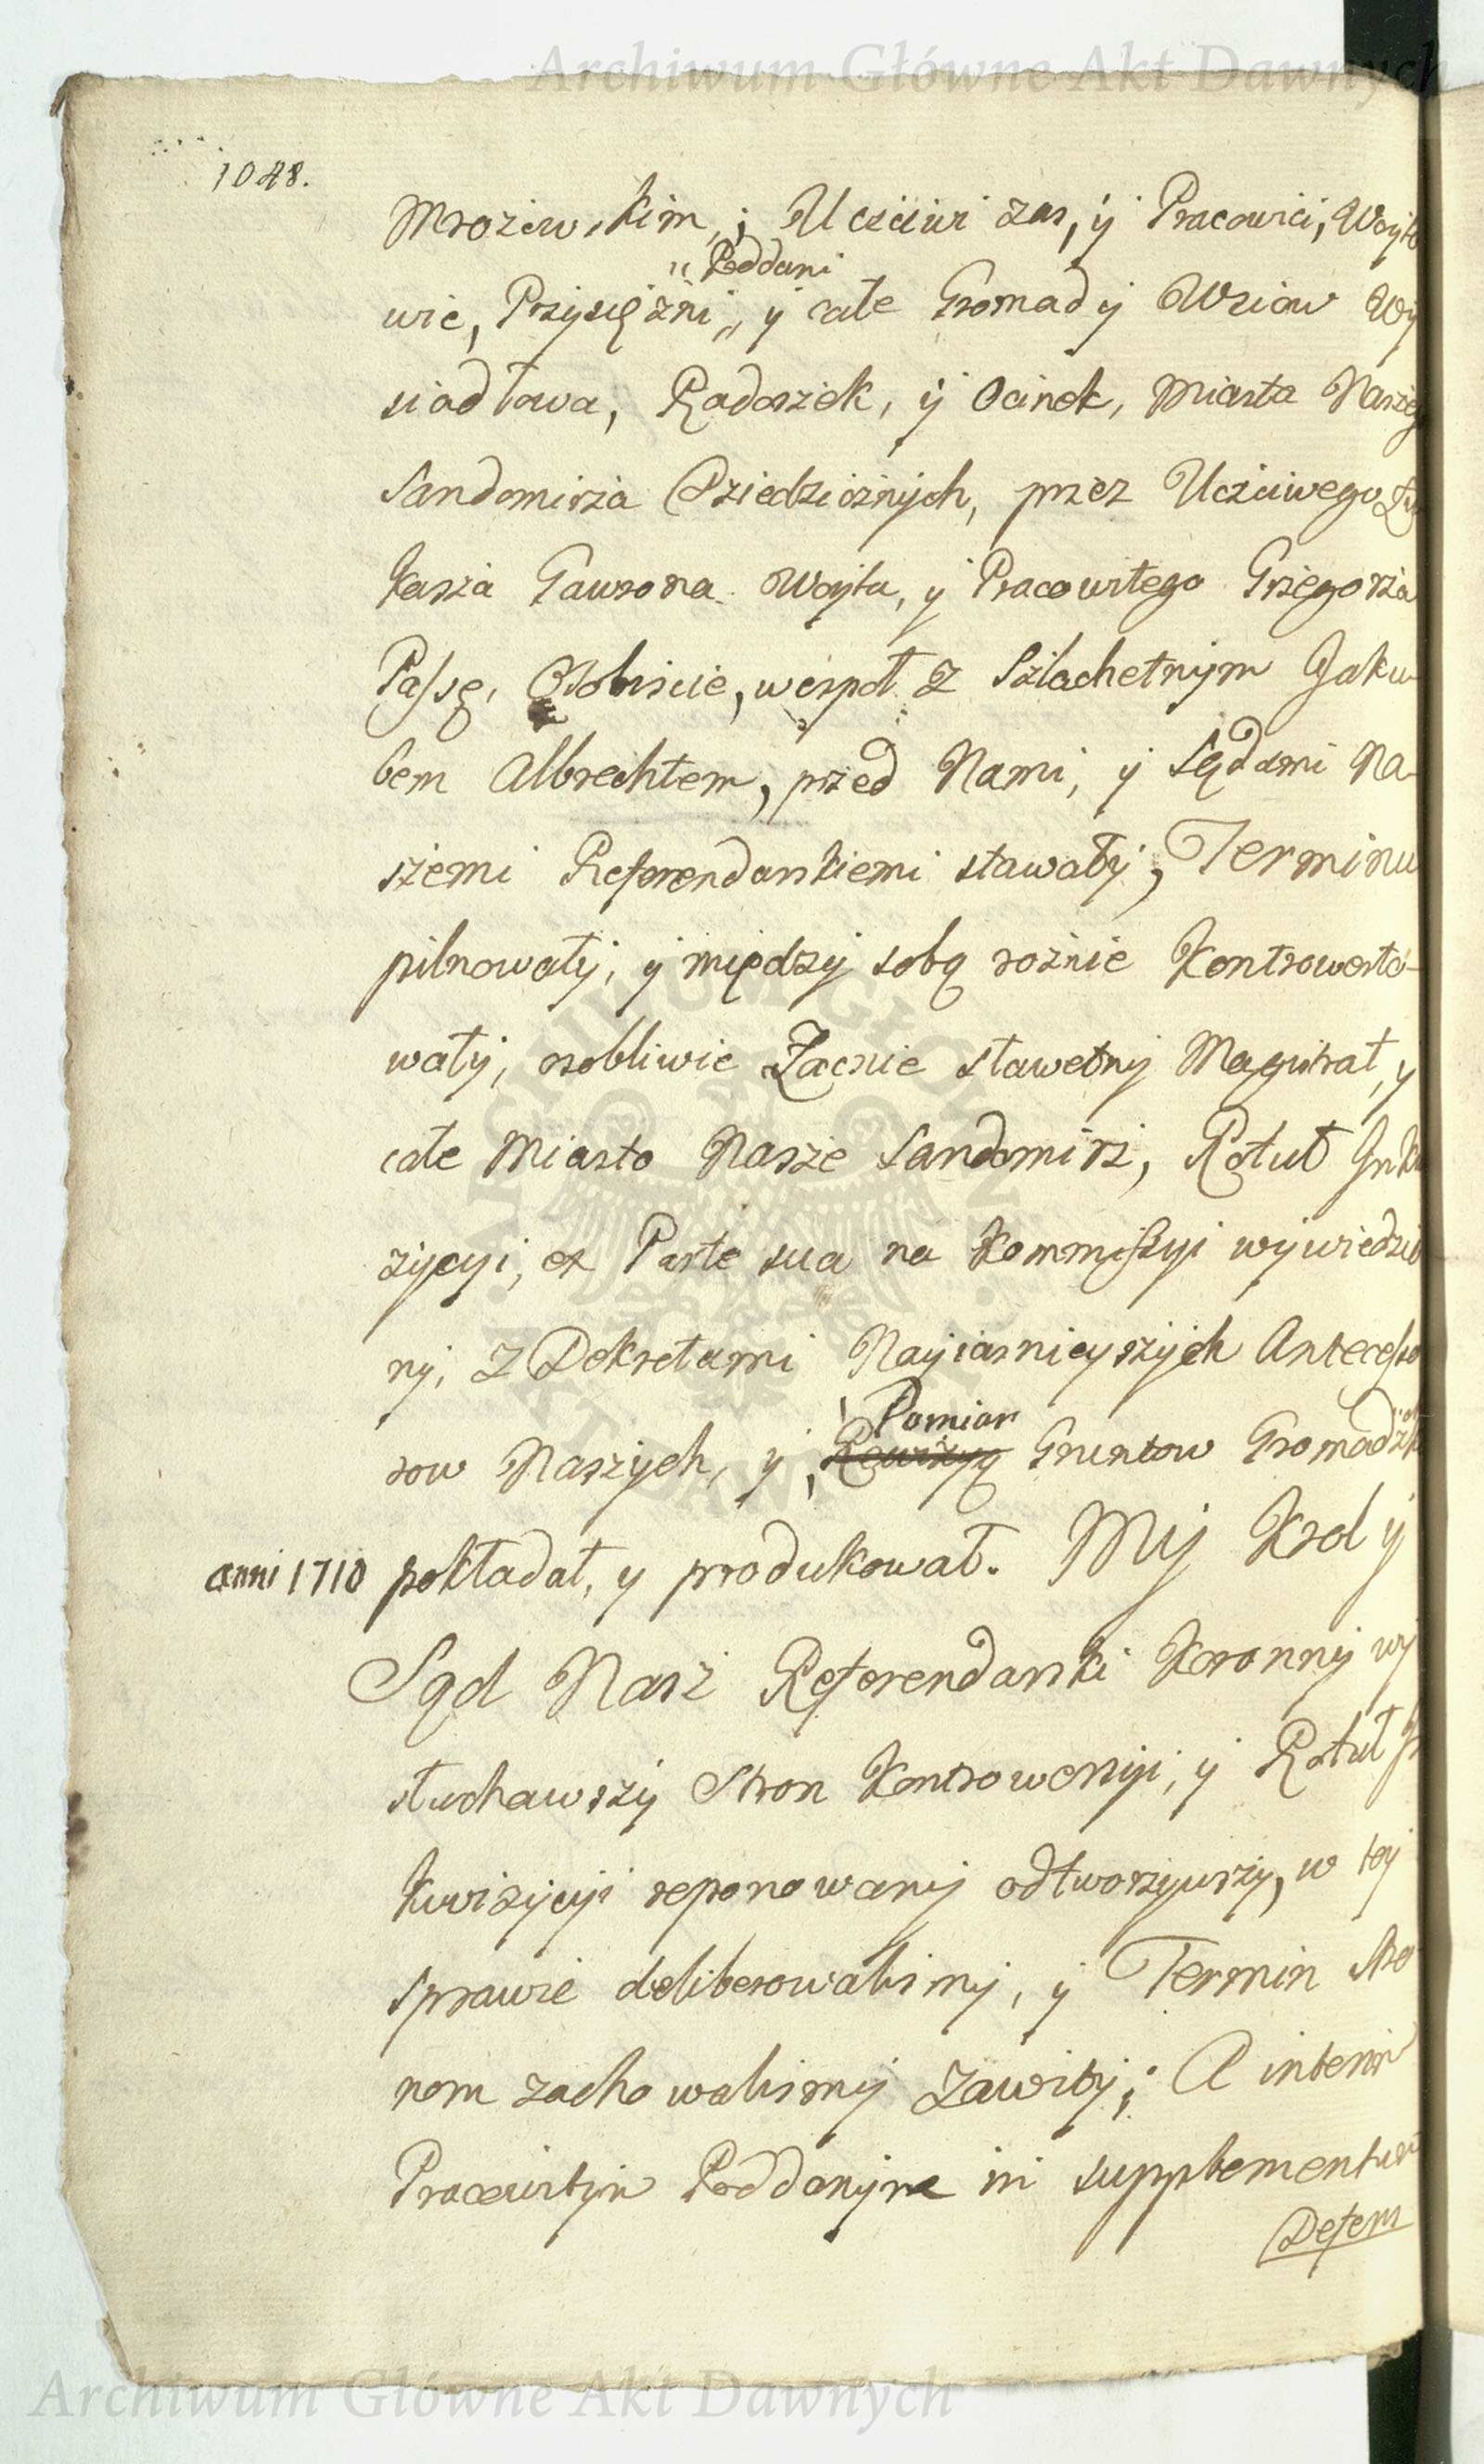 Archiwum Główne Akt Dawnych
1048.
Mroziewskim; Uczciwi zas, y Pracowici, Woyto
" Poddani
wie, Przysięźni „ y całe Gromady Wsiow Wy
siadłowa, Radoszek, y Ocinek, Miasta Naszeg
Sandomirza Dziedzicznych, przez Uczciwego Łu
kasza Gawrona Woyta, y Pracowitego Grzegorza
Passę, Osobiscie, wespoł z Szlachetnym Jaku-
bem Albrechtem, przed Nami, y Sądami Na-
szemi Referendarskiemi stawały, Terminu
pilnowały, y między sobą rożnie Kontrowerto-
wały, osobliwie Zacnie sławetny Magistrat, y
całe Miasto Nasze Sandomirz, Rotuł Inkw
zycyi, ex Parte sua na Kommissyi wywiedzio
ny, z Dekretami Nayiasnieyszych Antecesso
Pomiar
row Naszych, y Rewizyą Gruntow Gromadzk
anni 1710 pokładał, y produkował. My Krol y
Sąd Nasz Referendarski Koronny wy
słuchawszy Stron Kontrowersyi, y Rotuł In
kwizycyi reponowany odtworzywszy, w tey
sprawie deliberowalismy, y Termin Stro
nom zachowalismy Zawity; A interim
Pracowitym Poddanym in supplementum
Deferr
ARCHIWUM GŁÓWNE AKT DAWNYCH
Archiwum Główne Akt Dawnych